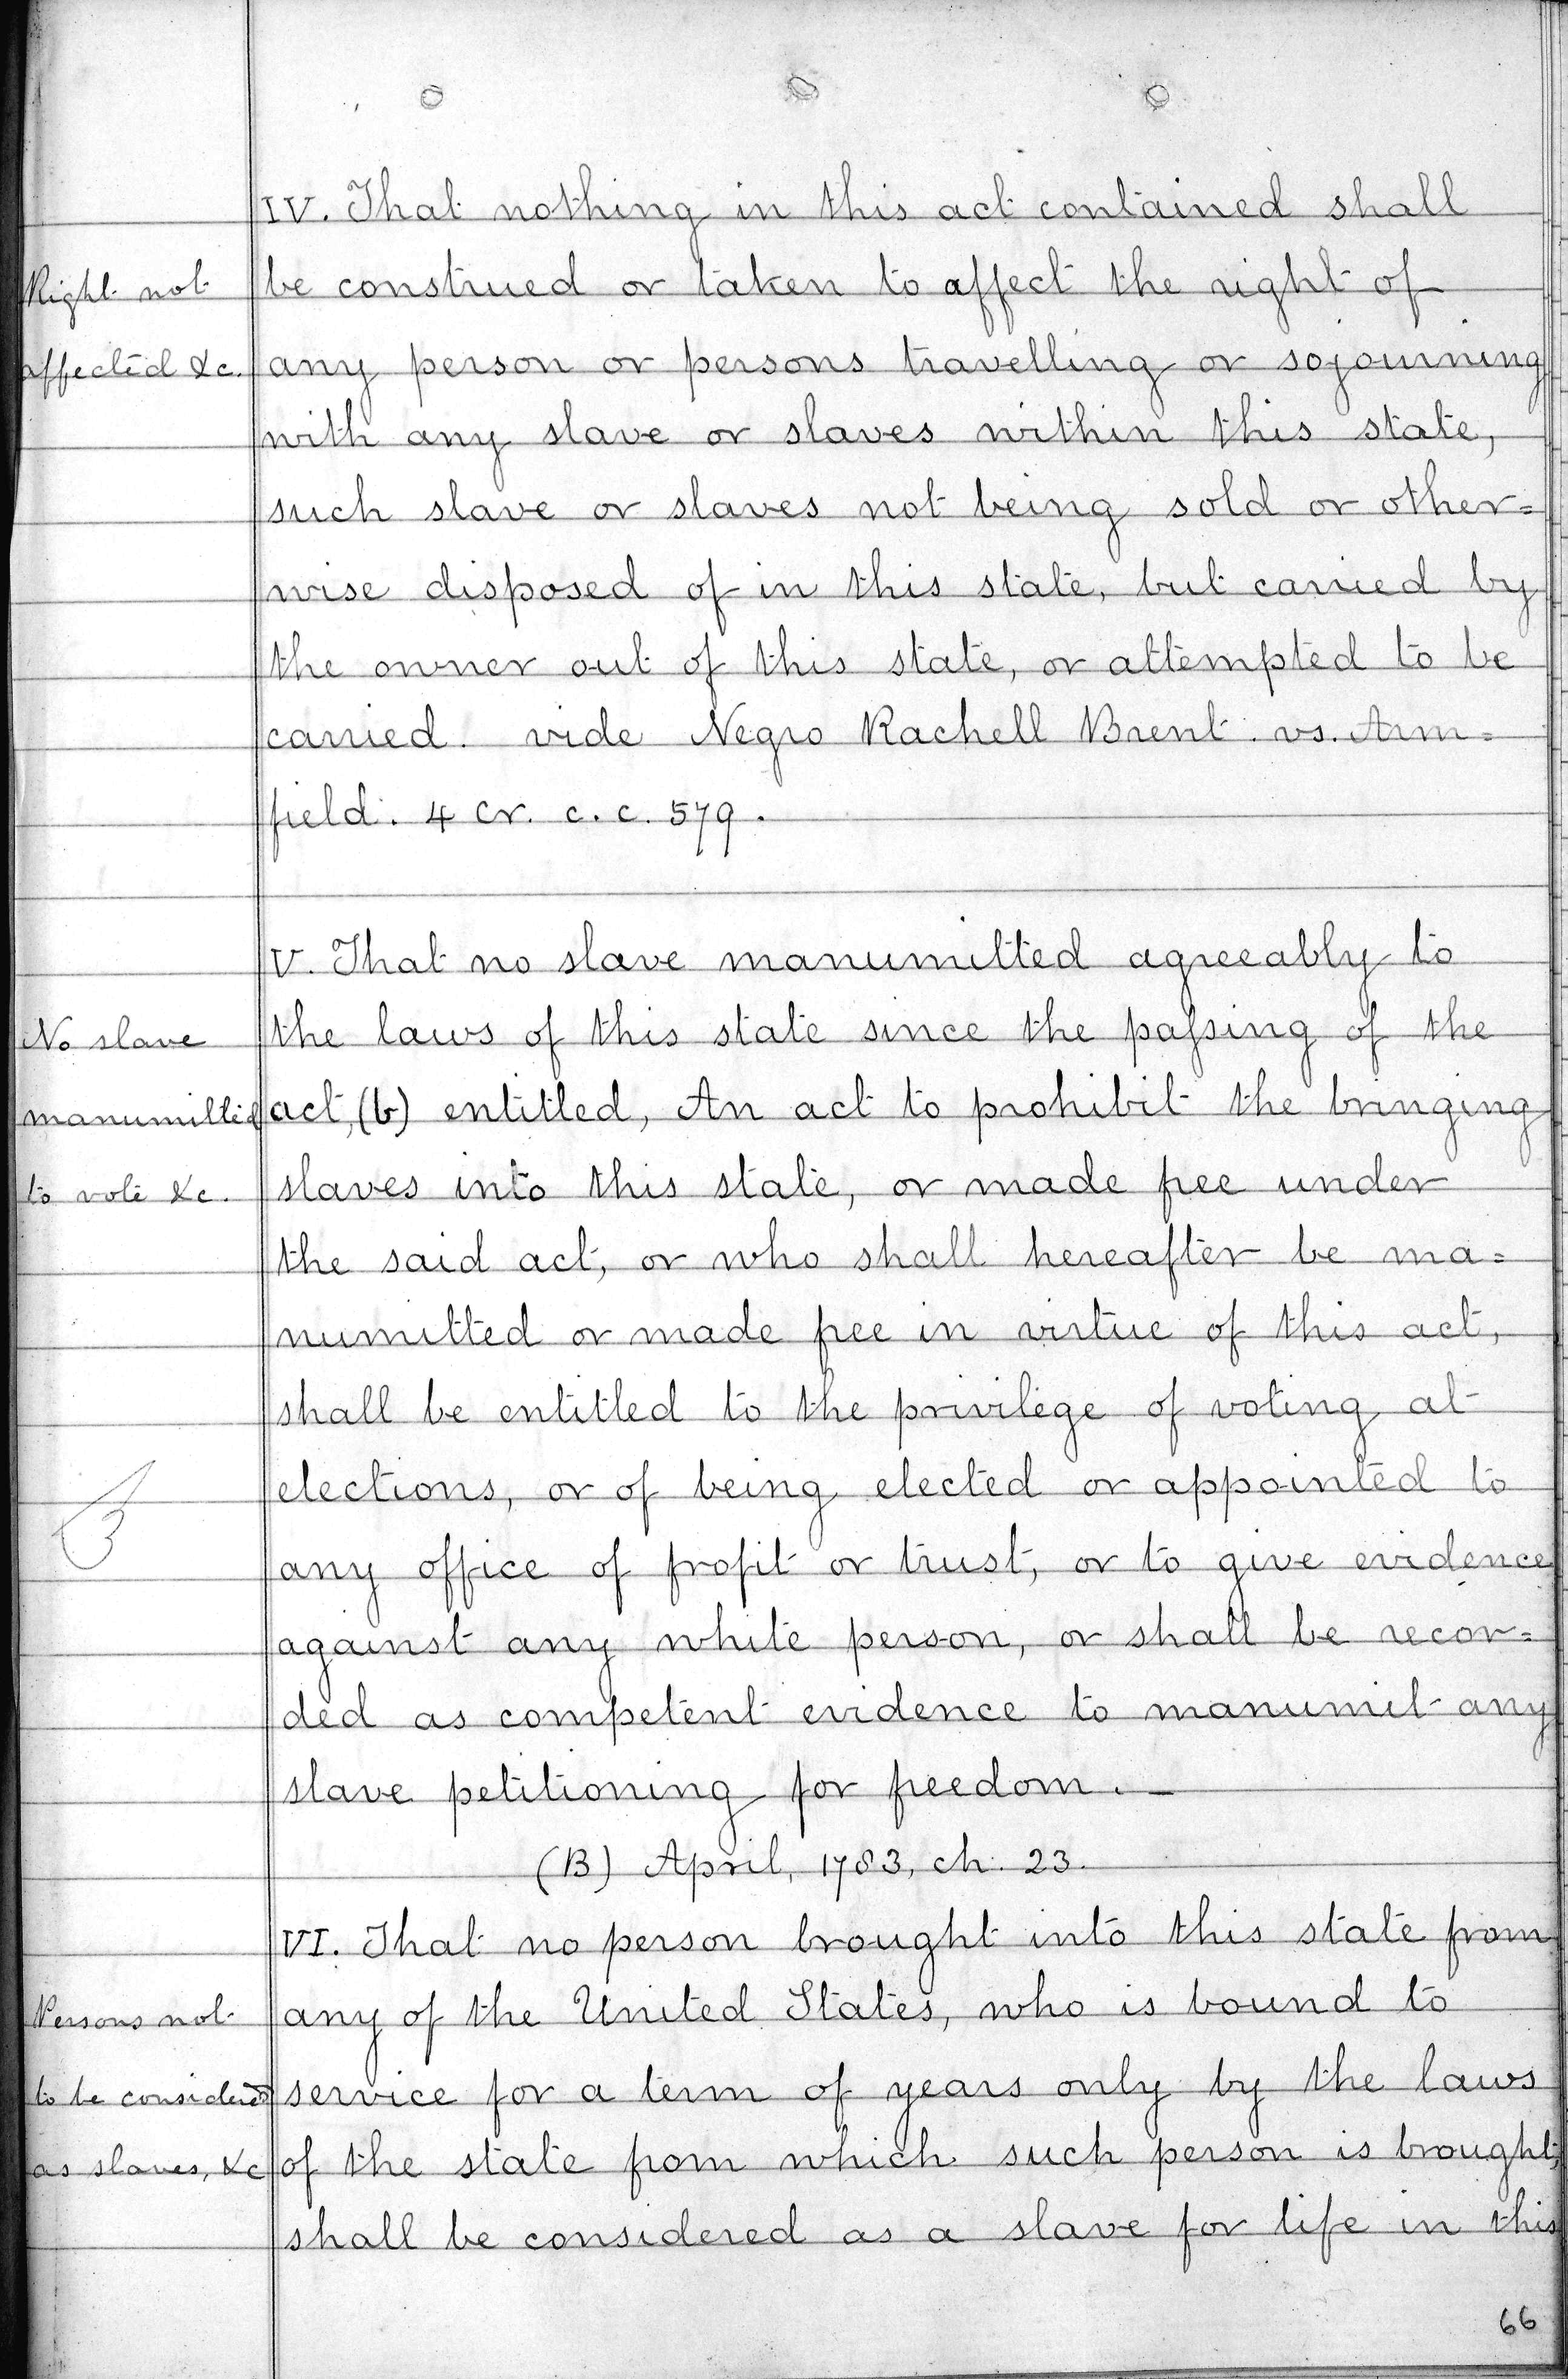 IV. That nothing in this act contained shall
Right not
be construed or taken to affect the right of
affected &c.
any person or persons travelling or sojourning
with any slave or slaves within this state,
such slave or slaves not being sold or other=
wise disposed of in this state, but carried by
the owner out of this state, or attempted to be
carried. vide Negro Rachell Brent vs. Arm=
field. 4 Cr. c.c. 579.
V. That no slave manumitted agreeably to
No slave
the laws of this state since the paſsing of the
manumitted
act, (b) entitled, An act to prohibit the bringing
to vote &c.
slaves into this state, or made free under
the said act, or who shall hereafter be ma=
numitted or made free in virtue of this act,
shall be entitled to the privilege of voting at
elections, or of being elected or appointed to
any office of profit or trust, or to give evidence
against any white person, or shall be recor=
ded as competent evidence to manumit any
slave petitioning for freedom. —
(B) April, 1783, ch. 23.
VI. That no person brought into this state from
Persons not
any of the United States, who is bound to
to be considered
service for a term of years only by the laws
as slaves, &c
of the state from which such person is brought,
shall be considered as a slave for life in this
66